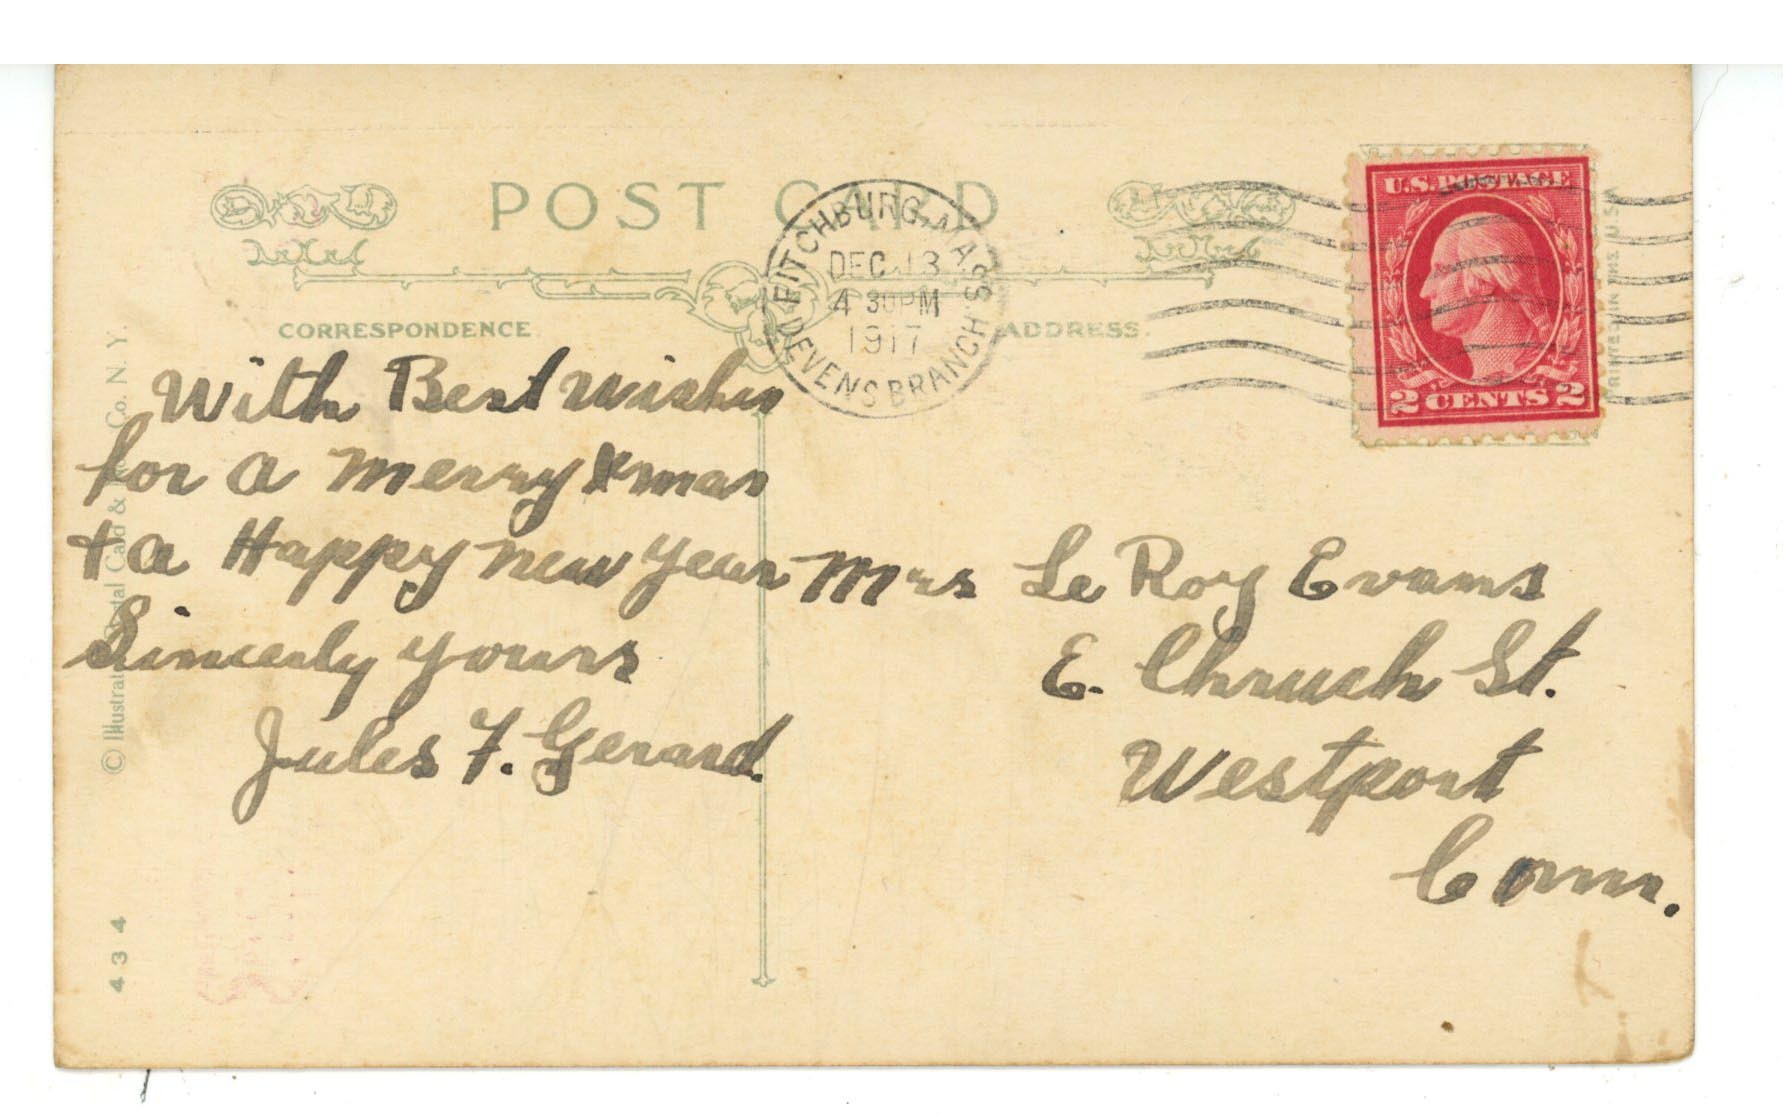 POST CARD
CORRESPONDENCE
ADDRESS.
FITCHBURG, MASS
DEC 13
4 30 PM
1917
DEVENS BRANCH
U.S. POSTAGE
2 CENTS 2
With Best Wishes
for a Merry Xmas
+ a Happy New Year
Sincerly yours
Jules F. Gerard.
Mrs Le Roy Evans
E. Chruch St.
Westport
Conn.
© Illustrated Postal Card & Co. N. Y.
434